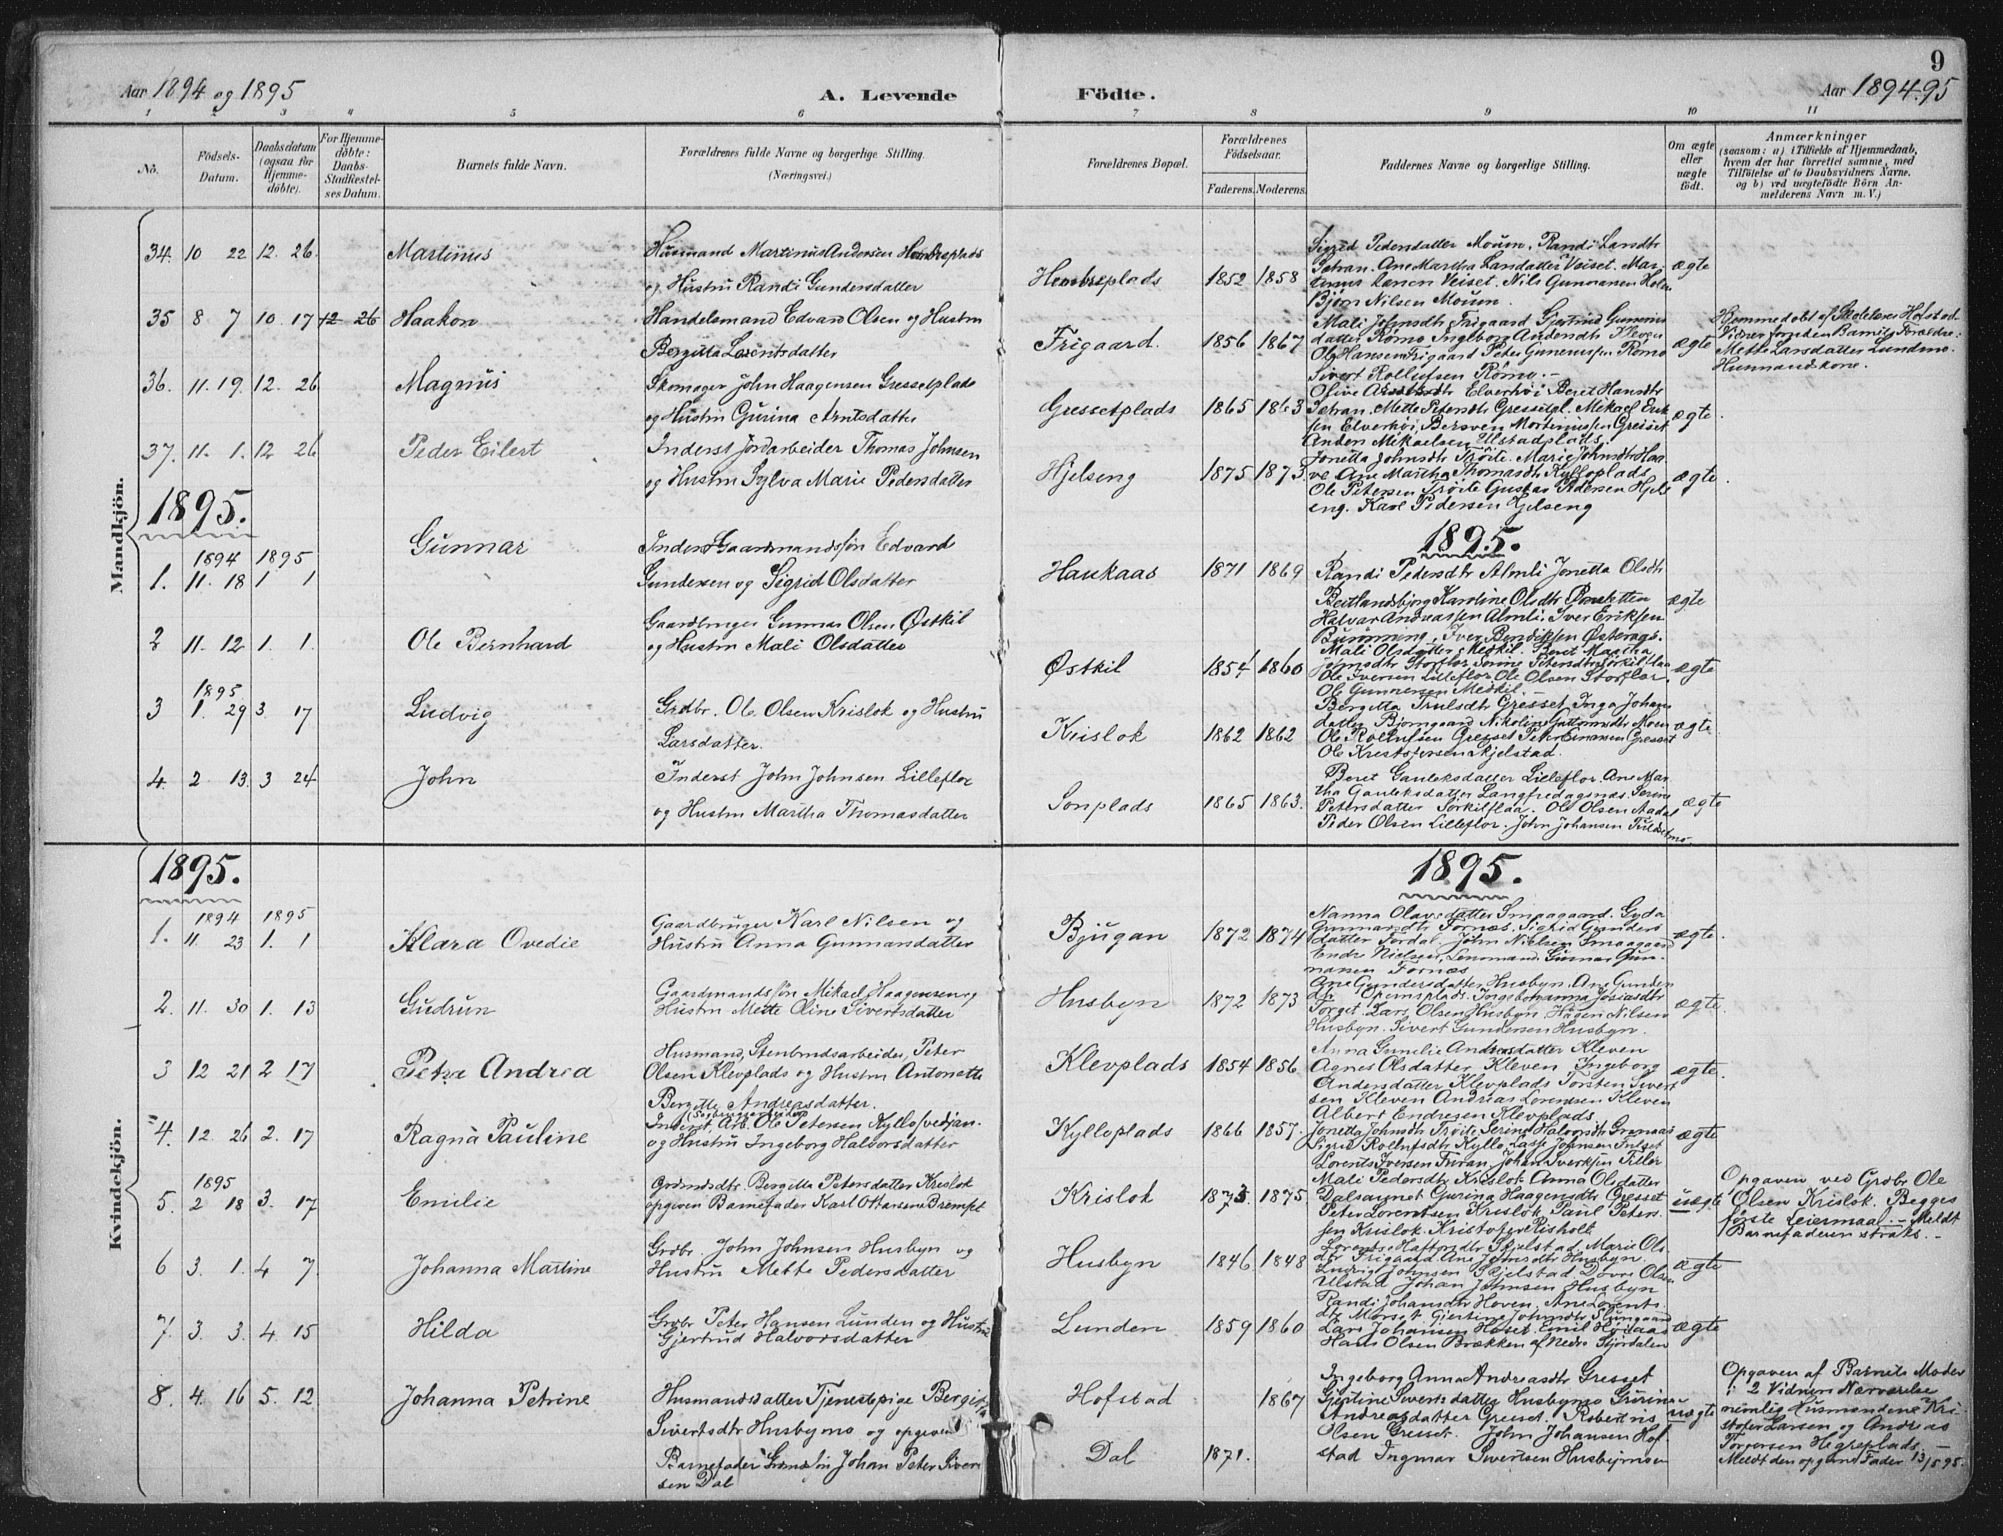 9
Aar 1894 og 1895
A. Levende
Födte.
Aar 1894-95
1 2 3 4 5 6 7 8 9 10 11
No.
Födsels-
Datum.
Daabsdatum
(ogsaa for
Hjemme-
döbte).
For Hjemme-
döbte:
Daabs-
Stadfæstel-
ses Datum.
Barnets fulde Navn.
Forældrenes fulde Navne og borgerlige Stilling.
(Næringsvei.)
Forældrenes Bopæl.
Forældrenes
Födselsaar.
Faderens. Moderens.
Faddernes Navne og borgerlige Stilling.
Om ægte
eller
uægte
födt.
Anmærkninger
(saasom: a) i Tilfælde af Hjemmedaab,
hvem der har forrettet samme, med
Tilföielse af to Daabsvidners Navne.
og b) ved uægtefödte Börn An-
melderens Navn m. V.)
Mandkjön.
34. 10 22 12. 26. Martinus
Husmand Martinus Andersen Hembreplads
og Hustru Randi Gundersdatter
Hembreplads 1852 1858
Sigrid Pedersdatter Moum. Randi Larsdtr
Ane Martha Larsdatter Veiset. Mar-
tinus Larsen Veiset. Nils Gunnarsen
Björn Nilsen Moum.
ægte
35 8 7 10. 17 12 26 Haakon
Handelsmand Edvard Olsen og Hustru
Bergitta Lorentsdatter
Frigaard. 1856 1867
Mali Johnsdtr Frigaard Gjertrud Gunnerus
datter Römo Ingeborg
Ole Hansen Frigaard Peter Gunnerussen Römo
Sivert Rollufsen Römo.
ægte
Hjemmedöbt af Hofstad
Vidner foruden Barnets Forældre:
Mette Larsdatter Lundmo.
Husmandskone.
36. 11. 19. 12. 26 Magnus
Skomager John Haagensen Gressetplads
og Hustru Gurina Arntsdatter
Gressetplads 1865 1863
Olive Elverhöi Beret Hansdtr
Mette Petersdtr Gressetpl. Mikael Erik-
sen Elverhöi, Bersven Mortenussen Gresset
Anders Mikaelsen Ulstadplads.
ægte.
37. 11. 1. 12 26 Peder Eilert
Inderst Jordarbeider Thomas Johnsen
og Hustru Sylva Marie Pedersdatter
Hjelseng 1875 1873.
Jonetta Johnsdtr Tröite. Marie Johnsdtr Haa-
ve Ane Martha Thomasdtr Kylloplads
Ole Petersen Tröite Gustav Pedersen Hjels
eng. Karl Pedersen Hjelseng
ægte.
1895.
1895.
1894 1895
1. 11. 18 1 1 Gunnar
Inderst Gaardmandssön Edvard
Gundersen og Sigrid Olsdatter
Haukaas 1871 1869
Randi Pedersdtr Almli Jonetta Olsdtr
Beitlandsbjörg Karoline Olsdtr
Halvar Andreassen Almli. Iver Eriksen
Iver Bendiksen
ægte
2 11. 12 1. 1. Ole Bernhard
Gaardbruger Gunnar Olsen Östkil
og Hustru Mali Olsdatter
Östkil 1854 1860
Mali Olsdatter Medkil. Beret Martha
Johnsdtr Storflor Sorine Petersdtr Sörkilflaa
Ole Iversen Lilleflor Ole Olsen Storflor.
Ole Gunnersen Medkil.
ægte
1895
3 1. 29 3 17 Ludvig
Grdbr. Ole Olsen Krislok og Hustru
Larsdatter.
Krislok 1862 1862
Bergitta Trulsdtr Gresset Inga Johans
datter Bjerngaard Nikoline
Ole Rollufsen Gresset Peter Einarsen Gresset
Ole Kristofersen Skjelstad.
ægte
4. 2 13. 3 24 John
Inderst John Johnsen Lilleflor
og Hustru Martha Thomasdatter
Sonplads 1865 1863.
Beret Gauteksdatter Lilleflor. Ane Mar
tha Gauteksdatter Langfredagsnæs. Serine
Petersdatter Sörkilflaa. Ole Olsen Aadal
Peder Olsen Lilleflor. John Johansen
ægte
Kvindekjön.
1895.
1895.
1894 1895
1. 11. 23 1. 1 Klara Ovedie
Gaardbruger Karl Nilsen og
Hustru Anna Gunnarsdatter
Bjugan 1872 1874
Nanna Olavsdatter Smaagaard. Gyda
Gunnarsdtr Fornæs. Sigrid Gunders
datter Fordal. John Nielsen Smaagaard
Endre Nielsen, Lensmand. Gunnar Gun-
narsen Fornæs
ægte.
2. 11. 30 1. 13 Gudrun
Gaardmandssön Mikael Haagensen og
Hustru Mette Oline Sivertsdatter
Husbyn 1872 1873
Ane Gundersdatter Husbyn. Ane Gunders
dtr Openisplads. Ingeborganna Josiasdtr
Torget. Lars Olsen Husbyn. Hågen Nilsen
Husbyn. Sivert Gundersen Husbyn.
ægte.
3 12 21 2 17 Petra Andrea
Husmand, Stenbrudsarbeider, Peter
Olsen Klevplads og Hustru Antonette
Bergitte Andreasdatter.
Klevplads 1854 1856
Anna Gunelie Andersdatter Kleven
Agnes Olsdatter Kleven Ingeborg
Andersdatter Klevplads Torsten Sivert
sen Kleven Andreas Lorentsen Kleven
Albert Endresen Klevplads.
ægte.
4. 12. 26 2. 17 Ragna Pauline
Inderst, Arb. Ole Petersen Kyllosvedjan
og Hustru Ingeborg Halvorsdatter
Kylloplads 1866 1857.
Jonetta Johnsdtr Tröite Serine Halvorsdtr
Sigrid Rollufsdtr Kyllo. Lasse Johnsen
Lorents Iversen Johan Sivertsen Tiller
ægte
1895
5. 2 18 3. 17 Emilie
Grdmdsdtr. Bergitta Petersdatter Krislok
opgiven Barnefader Karl Ottarsen Brempt
Krislok 1873. 1875
Mali Pedersdtr Krislok Anna Olsdatter
Dalsaunet Gurina Haagensdtr Gresset
Peter Lorentsen Krislok Paul Peters.
sen Krislok. Kristofer Risholt
uægte
Opgaven ved Grdbr Ole
Olsen Krislok. Begges
förste Leiermaal. — Meldt
Barnefaderen straks. —
6 3. 1. 4 7. Johanna Martine
Grdbr. John Johnsen Husbyn og
Hustru Mette Pedersdatter
Husbyn 1846. 1848
Skjelstad. Marie Ols
dtr Frigaard Ane Johnsdtr Husbyn
Ludvig Johnsen Skjelstad Olsen
Ulstad Johan Johnsen Husbyn
ægte
7. 3. 3. 4. 15 Hilda
Grdbr Peter Hansen Lunden og Hustru
Gjertrud Halvorsdatter
Lunden 1859 1860
Randi Johansdtr Hoven. Ane Lorents
dtr Morset. Gjertine Johnsdtr
Lars Johansen Emil
Hans Olsen Brækken af Nedre Stjördalen
ægte
8. 4. 16 5. 12 Johanna Petrine
Husmandsdatter Tjenestepige Bergitta
Sivertsdtr Husbymo og opgiven
Barnefader Johan Peter Sivert
sen Dal
Hofstad 1867
Dal 1871.
Ingeborg Anna Andreasdtr Gresset
Gjertine Sivertsdatter Husbymo Gurine
Andreasdatter Gresset. Robertus
Olsen Gresset. John Johansen Hof-
stad Ingmar Sivertsen Husbymoen
uægte
Opgaven af Barnets Moder
i 2 Vidners Nærværelse
nemlig Husmændene Kri-
stofer Larsen og Andreas
Torgersen Hegreplads. —
Meldt den opgivne Fader 13/5 95.